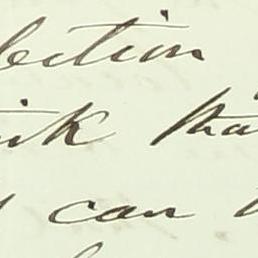 lection
ink tha
can